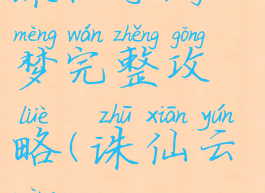 mèng wán zhěng gōng
梦完整攻
lüè zhū xiān yún
略(诛仙云